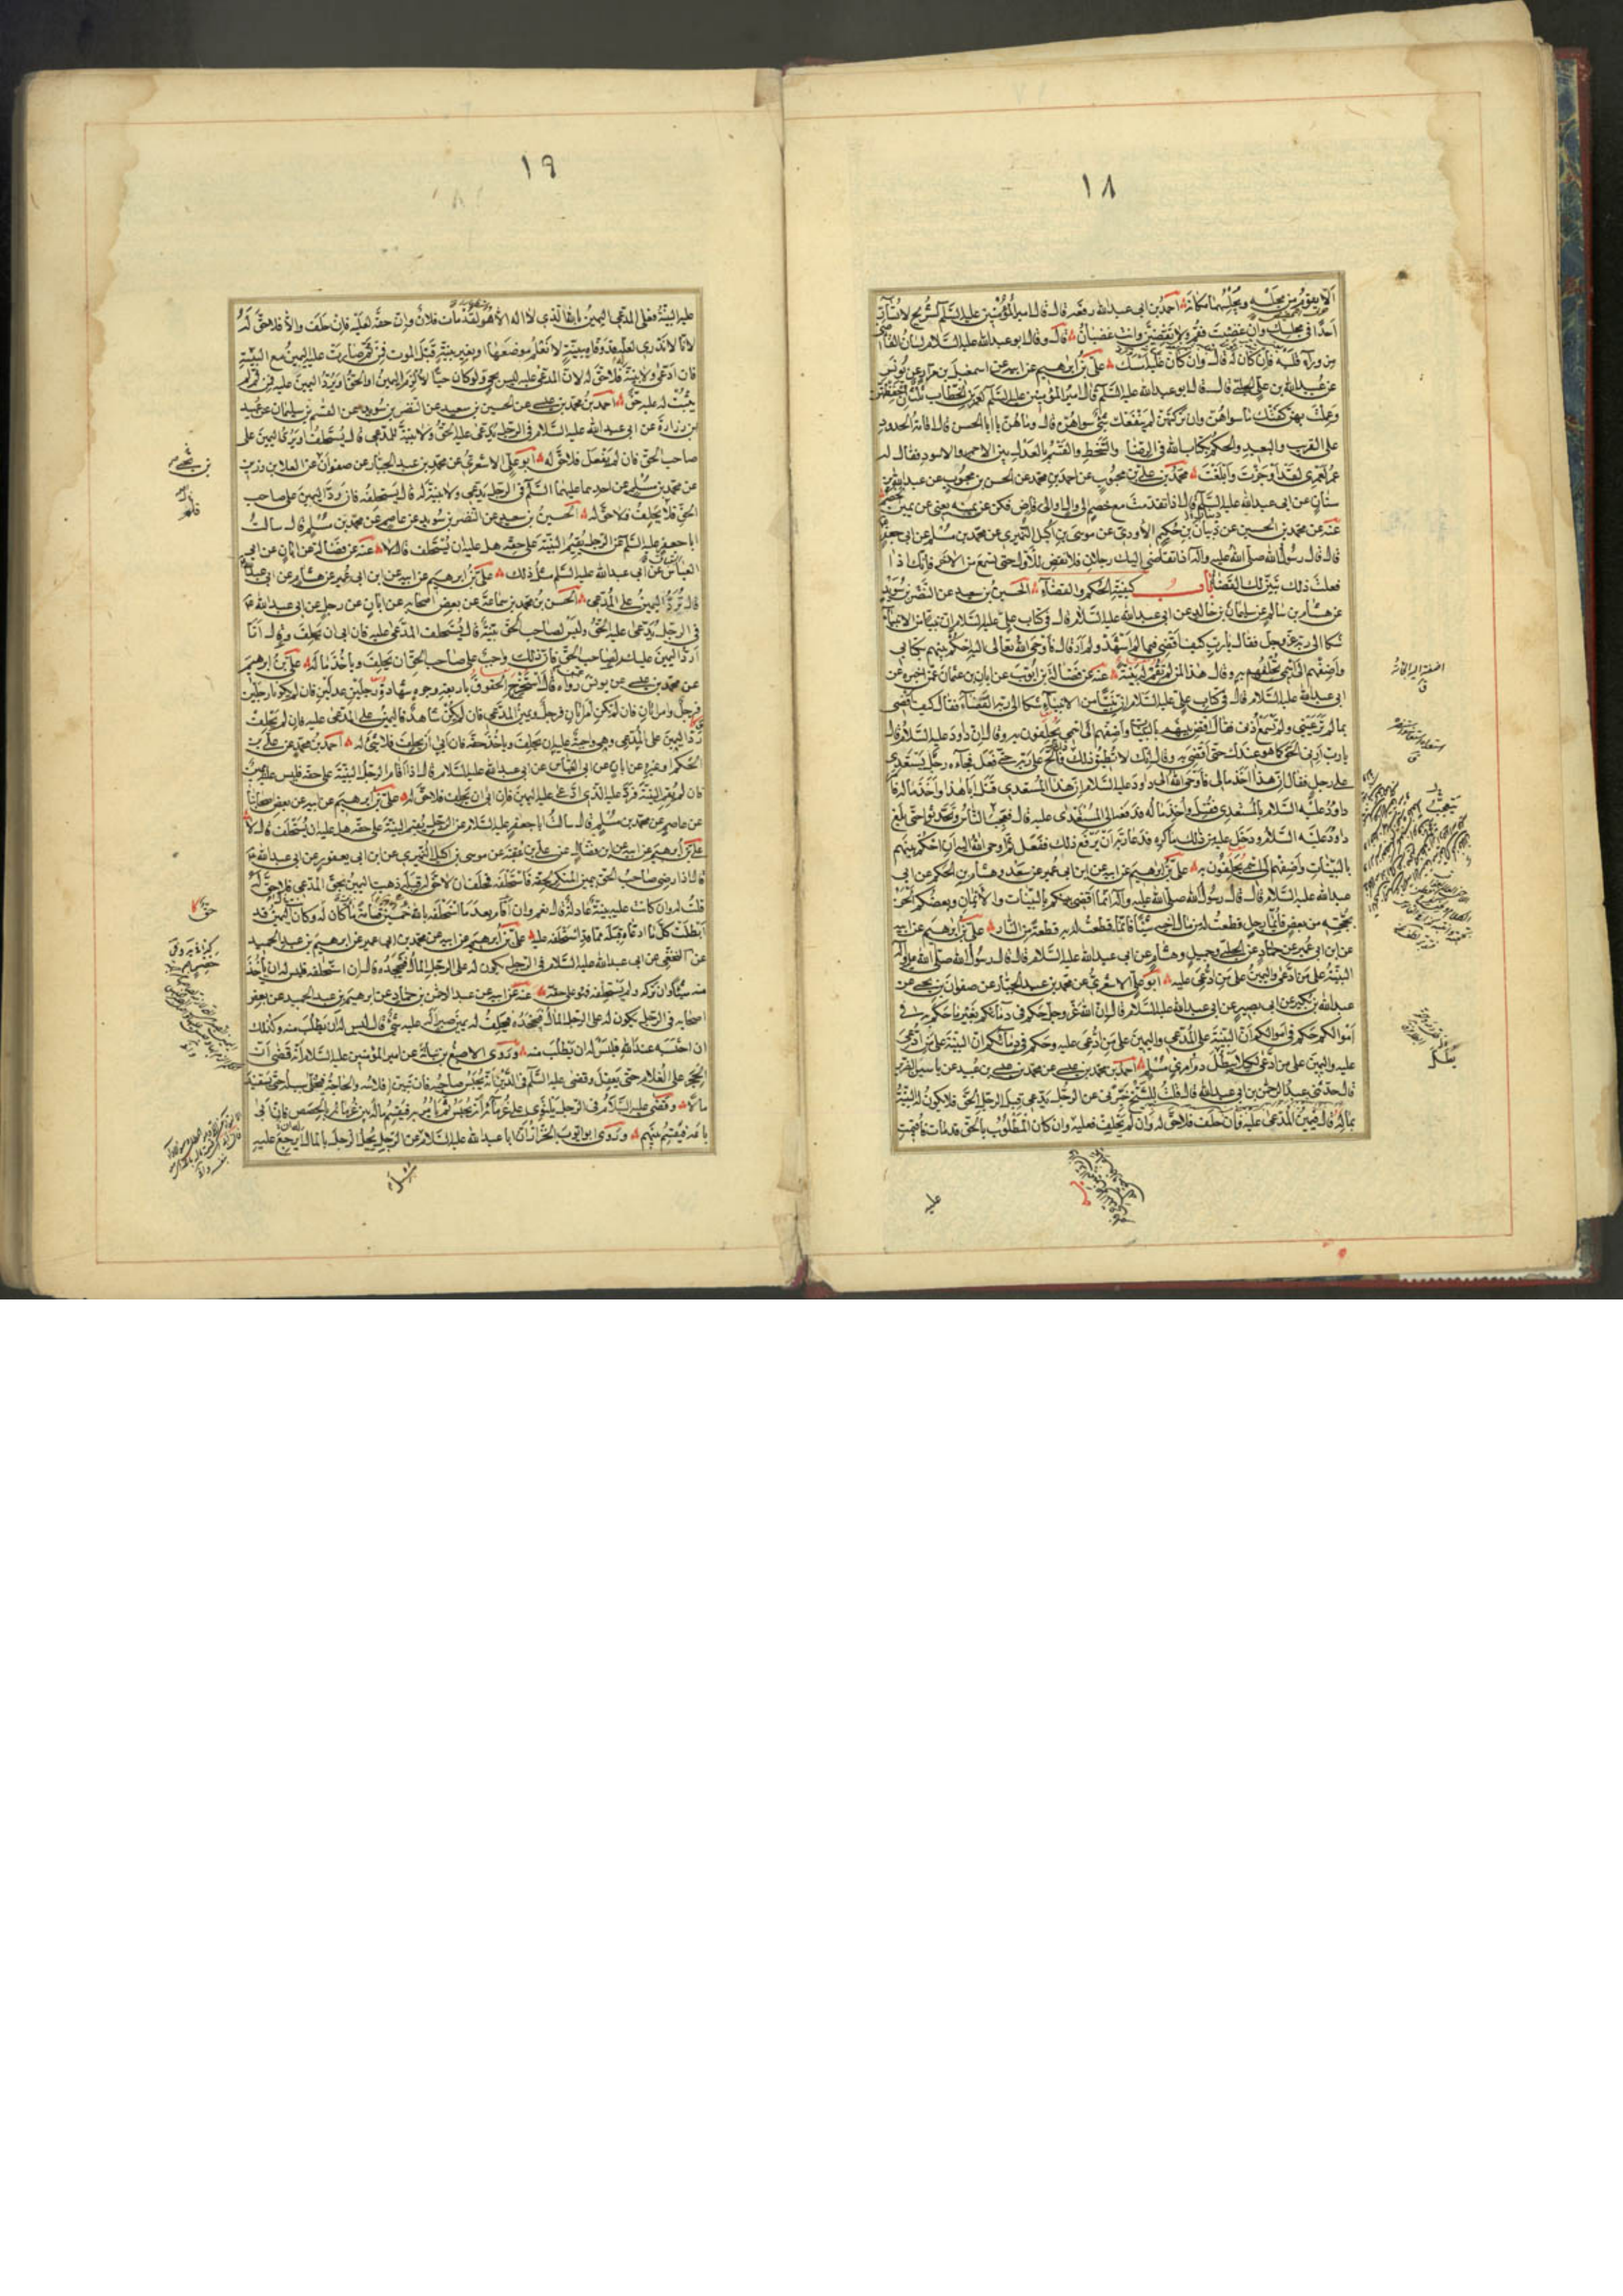 ١٨
الا يقوم من مجلسه ويجلسهما مكانه احمد بن ابى عبدالله رفعه قال قال امير المؤمنين عليه السلم لشريح لا تسار
احدا فى مجلسك وان غضبت فقم ولا تقضين وانت غضبان قال وقال ابو عبدالله عليه السلام لسان القاضى
من وراء قلبه فان كان له قال وان كان عليه امسك على بن ابرهيم عن ابيه عن اسمعيل بن مرار عن يونس
عن عبيدالله بن على الحلبى قال قال ابو عبدالله عليه السلم قال امير المؤمنين عليه السلم لعمر بن الخطاب ثلث ان حفظتهن
وعملت بهن كفتك ما سواهن وان تركتهن لم ينفعك شىء سواهن قال وما هن يا ابا الحسن قال اقامة الحدود
على القريب والبعيد والحكم بكتاب الله فى الرضا والسخط والقسم بالعدل بين الاحمر والاسود فقال له
عمر لعمرى لقد اوجزت وابلغت محمد بن على بن محبوب عن احمد بن محمد عن الحسن بن محبوب عن عبدالله بن
سنان عن ابى عبدالله عليه السلم قال اذا تقدمت مع خصم الى وال او الى قاض فكن عن يمينه يعنى عن يمين الخصم
عنه عن محمد بن الحسين عن ذبيان بن حكيم الاودى عن موسى بن اكيل النميرى عن محمد بن مسلم عن ابى جعفر
قال قال رسول الله صلى الله عليه واله اذا تقاضى اليك رجلان فلا تقض للاول حتى تسمع من الاخر فانك اذا
فعلت ذلك تبين لك القضاء باب كيفية الحكم والقضاء الحسين بن سعيد عن النضر بن سويد
عن هشام بن سالم عن سليمان بن خالد عن ابى عبدالله عليه السلام قال فى كتاب على عليه السلام ان نبيا من الانبياء
شكا الى ربه عز وجل فقال يا رب كيف اقضى فيما لم اشهد ولم ار قال فاوحى الله تعالى اليه احكم بينهم بكتابى
واضفهم الى اسمى تحلفهم به وقال هذا لمن لم تقم له بينة عنه عن فضالة بن ايوب عن ابان بن عثمان عمن اخبره عن
ابى عبدالله عليه السلام قال فى كتاب على عليه السلام ان نبيا من الانبياء شكا الى ربه القضاء فقال كيف اقضى
بما لم تر عينى ولم تسمع اذنى فقال اقض بينهم بالبينات واضفهم الى اسمى يحلفون به وقال ان داود عليه السلام قال
يا رب ارنى الحق كما هو عندك حتى اقضى به فقال انك لا تطيق ذلك فالح على ربه حتى فعل فجاءه رجل يستعدى
على رجل فقال ان هذا اخذ مالى فاوحى الله الى داود عليه السلام ان هذا المستعدى قتل ابا هذا واخذ ماله فامر
داود عليه السلام بالمستعدى فقتل واخذ ماله فدفعه الى المستعدى عليه قال فعجب الناس وتحدثوا حتى بلغ
داود عليه السلام ودخل عليه من ذلك ما كره فدعا ربه ان يرفع ذلك ففعل ثم اوحى الله اليه ان احكم بينهم
بالبينات واضفهم الى اسمى يحلفون به على بن ابرهيم عن ابيه عن ابن ابى عمير عن سعد وهشام بن الحكم عن ابى
عبدالله عليه السلام قال قال رسول الله صلى الله عليه واله انما اقضى بينكم بالبينات والايمان وبعضكم الحن
بحجته من بعض فايما رجل قطعت له من مال اخيه شيئا فانما قطعت له به قطعة من النار على بن ابرهيم عن ابيه
عن ابن ابى عمير عن حماد عن الحلبى وجميل وهشام عن ابى عبدالله عليه السلام قال قال رسول الله صلى الله عليه واله
البينة على من ادعى واليمين على من ادعى عليه ابو على الاشعرى عن محمد بن عبد الجبار عن صفوان بن يحيى عن
عبدالله بن بكير عن ابى بصير عن ابى عبدالله عليه السلام قال ان الله عز وجل حكم فى دمائكم بغير ما حكم به فى
اموالكم حكم فى اموالكم ان البينة على المدعى واليمين على من ادعى عليه وحكم فى دمائكم ان البينة على من ادعى
عليه واليمين على من ادعى لكيلا يبطل دم امرئ مسلم احمد بن محمد بن عيسى عن محمد بن عيسى بن عبيد عن ياسين الضرير
قال حدثنى عبد الرحمن بن ابى عبدالله قال قلت للشيخ خبرنى عن الرجل يدعى قبل الرجل الحق فلا يكون له البينة
بماله قال فيمين المدعى عليه فان حلف فلا حق له وان لم يحلف فعليه وان كان المطلوب بالحق قد مات فاقيمت
عليه
١٩
عليه البينة فعلى المدعى اليمين بالله الذى لا اله الا هو لقد مات فلان وان حقه لعليه فان حلف والا فلا حق له
لانا لا ندرى لعله قد وفاه ببينة لا نعلم موضعها او بغير بينة قبل الموت فمن ثم صارت عليه اليمين مع البينة
فان ادعى ولا بينة فلا حق له لان المدعى عليه ليس بحى ولو كان حيا لالزم اليمين او الحق او يرد اليمين عليه فمن ثم لم
يثبت له عليه حق احمد بن محمد بن عيسى عن الحسين بن سعيد عن النضر بن سويد عن القسم بن سليمان عن عبيد
بن زرارة عن ابى عبدالله عليه السلام فى الرجل يدعى عليه الحق ولا بينة للمدعى قال يستحلف او يرد اليمين على
صاحب الحق فان لم يفعل فلا حق له ابو على الاشعرى عن محمد بن عبد الجبار عن صفوان عن العلا بن رزين
عن محمد بن مسلم عن احدهما عليهما السلم فى الرجل يدعى ولا بينة له قال يستحلفه فان رد اليمين على صاحب
الحق فلم يحلف فلا حق له الحسين بن سعيد عن النضر بن سويد عن عاصم عن محمد بن مسلم قال سالت
ابا جعفر عليه السلم عن الرجل يقيم البينة على حقه هل عليه ان يستحلف قال لا عنه عن فضالة عن ابان عن ابى
العباس عن ابى عبدالله عليه السلم مثل ذلك على بن ابرهيم عن ابيه عن ابن ابى عمير عن هشام عن ابى عبدالله
قال ترد اليمين على المدعى الحسن بن محمد بن سماعة عن بعض اصحابه عن ابان عن رجل عن ابى عبدالله
فى الرجل يدعى عليه الحق وليس لصاحب الحق بينة قال يستحلف المدعى عليه فان ابى ان يحلف وقال انا
ارد اليمين عليك لصاحب الحق فان ذلك واجب على صاحب الحق ان يحلف وياخذ ماله على بن ابرهيم
عن محمد بن عيسى عن يونس رواه قال استخراج الحقوق باربعة وجوه بشهادة رجلين عدلين فان لم يكونا رجلين
فرجل وامراتان فان لم تكن امراتان فرجل ويمين المدعى فان لم يكن شاهد فاليمين على المدعى عليه فان لم يحلف
رد اليمين على المدعى وهى واجبة عليه ان يحلف وياخذ حقه فان ابى ان يحلف فلا شىء له احمد بن محمد عن على بن
الحكم او غيره عن ابان عن ابى العباس عن ابى عبدالله عليه السلام قال اذا اقام الرجل البينة على حقه فليس عليه يمين
فان لم يقم البينة فرد عليه الذى ادعى عليه اليمين فان ابى ان يحلف فلا حق له على بن ابرهيم عن ابيه عن بعض اصحابنا
عن عاصم عن محمد بن مسلم قال سالت ابا جعفر عليه السلام عن الرجل يقيم البينة على حقه هل عليه ان يستحلف قال لا
على بن ابرهيم عن ابيه عن ابن فضال عن على بن عقبة عن موسى بن اكيل النميرى عن ابن ابى يعفور عن ابى عبدالله
قال اذا رضى صاحب الحق بيمين المنكر لحقه فاستحلفه فحلف ان لا حق له قبله ذهبت اليمين بحق المدعى فلا حق له
قلت له وان كانت عليه بينة عادلة قال نعم وان اقام بعد ما استحلفه بالله خمسين قسامة ما كان له وكان اليمين قد
ابطلت كل ما ادعاه قبله مما قد استحلفه عليه على بن ابرهيم عن ابيه عن محمد بن ابى عمير عن ابرهيم بن عبد الحميد
عن النخعى عن ابى عبدالله عليه السلام فى الرجل يكون له على الرجل المال فيجحده قال ان استحلفه فليس له ان ياخذ
منه شيئا وان تركه ولم يستحلفه فهو على حقه عنه عن ابيه عن عبد الرحمن بن حماد عن ابرهيم بن عبد الحميد عن بعض
اصحابه فى الرجل يكون له على الرجل المال فيجحده فيحلف له يمين صبر اله عليه شىء قال ليس له ان يطلب منه وكذلك
ان احتسبه عند الله فليس له ان يطلب منه وروى الاصبغ بن نباتة عن امير المؤمنين عليه السلام انه قضى ان
الحجر على الغلام حتى يعقل وقضى عليه السلم فى الدين انه يحبس صاحبه فان تبين افلاسه والحاجة فيخلى سبيله حتى يستفيد
مالا وقضى عليه السلام فى الرجل يلتوى على غرمائه انه يحبس ثم يامر به فيقسم ماله بين غرمائه بالحصص فان ابى
باعه فيقسم بينهم وروى ابو ايوب الخزاز ان ابا عبدالله عليه السلام عن الرجل يحيل الرجل بالمال ايرجع عليه